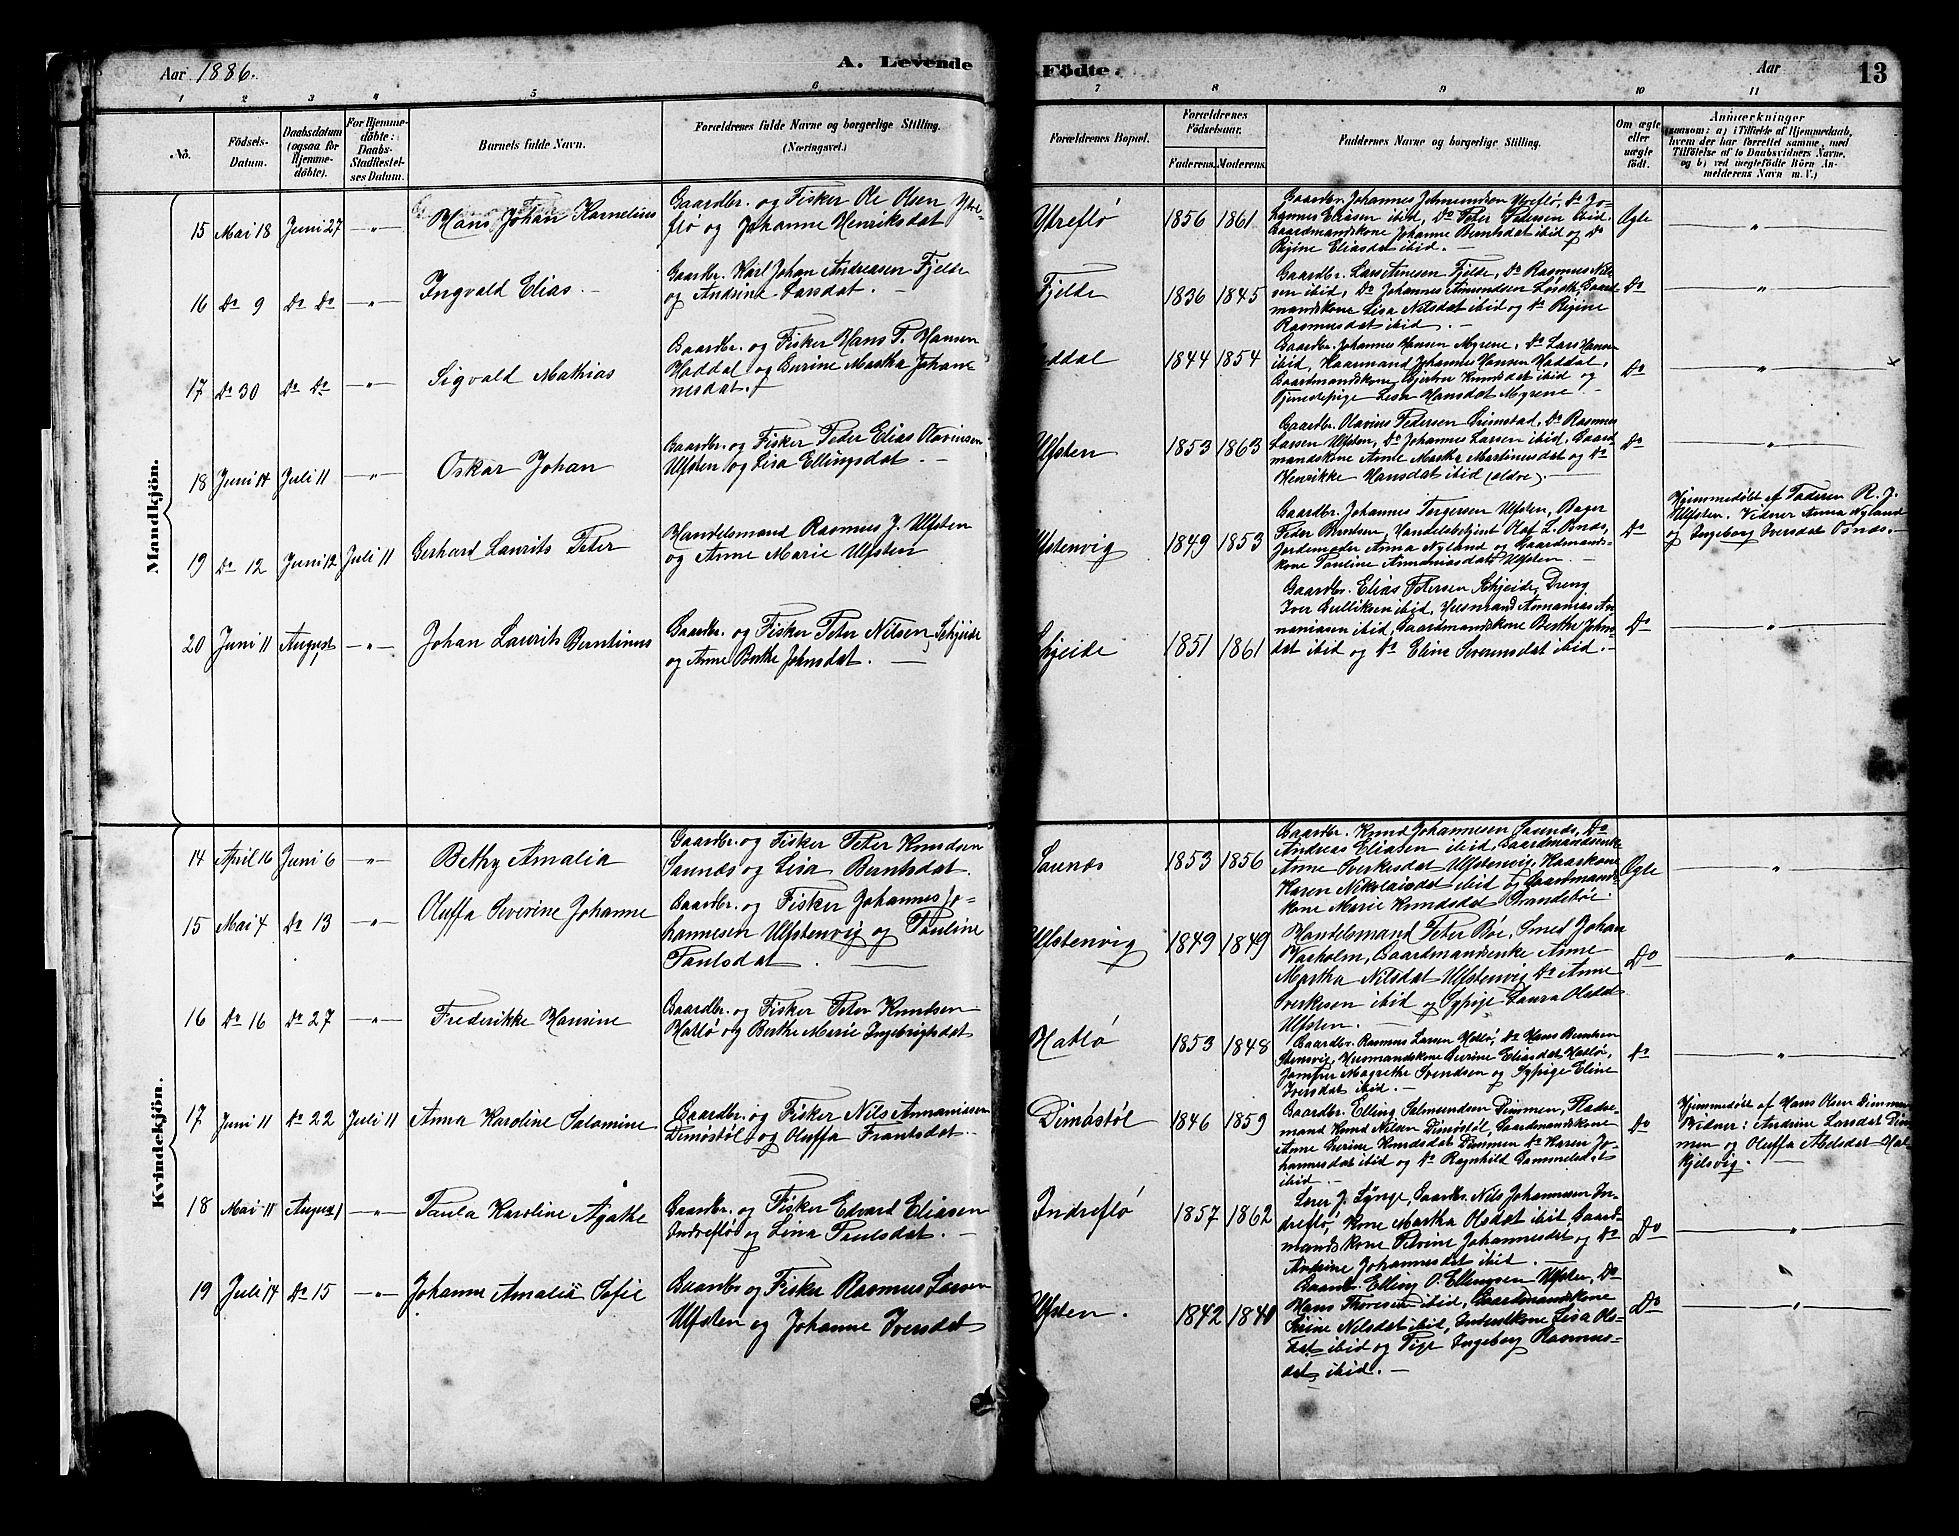 Aar 1886.
A. Levende
Födte.
Aar
13
1 2 3 4 5 6 7 8 9 10 11
No.
Födsels-
Datum.
Daabsdatum
(ogsaa for
Hjemme-
döbte).
For Hjemme-
döbte:
Daabs-
Stadfæstel-
ses Datum.
Barnets fulde Navn.
Forældrenes fulde Navne og borgerlige Stilling.
(Næringsvei.)
Forældrenes Bopæl.
Forældrenes
Födselsaar.
Faderens. Moderens.
Faddernes Navne og borgerlige Stilling.
Om ægte
eller
uægte
födt.
Anmærkninger
saasom: a) i Tilfælde af Hjemmedaab,
hvem der har forrettet samme, med
Tilföielse af to Daabsvidners Navne,
og b) ved uægtefödte Börn An-
melderens Navn m. V.)
Mandkjön.
15 Mai 18 Juni 27 -"- Hans Johan Kornelius
Gaardbr. og Fisker Ole Olsen Ytre-
flö og Johanne Henriksdat
Ytreflö 1856 1861
Gaardbr. Johannes Johnsen Ytreflö, Do Jo-
hannes Eliasen ibid, Do Peter Pedersen ibid.
Gaardmandskone Johanne Berntsdat ibid og Do
Regine Eliasdat ibid. -
Ægte "
16 Do 9 Do Do " Ingvald Elias. -
Gaardbr. Karl Johan Andreasen Fjelde
og Andrine Larsdat. -
Fjelde 1836 1845
Gaardbr. Lars Arnesen Fjelde, Do Rasmus Nil-
sen ibid, Do Johannes Amundsen Löset, Gaard-
mandskone Lisa Nilsdat ibid og Do Regine
Rasmusdat ibid. -
Do "
17 Do 30 Do Do -"- Sigvald Mathias
Gaardbr. og Fisker Hans P. Hansen
Haddal og Gurine Martha Johan-
nesdat.
Haddal 1844 1854
Gaardbr. Johannes Hansen Myrene, Do Lars Hansen
ibid, Kaarmand Johannes Hansen Haddal,
Gaardmandskone Gjertru Knudsdat ibid og
Tjenestepige Lesa Hansdat Myrene. -
Do "
18 Juni 14 Juli 11 -"- Oskar Johan
Gaardbr. og Fisker Peder Elias Olavinsen
Ulfsten og Lisa Ellingsdat. -
Ulfsten 1853 1863
Gaardbr. Olavius Pedersen Grimstad, Do Rasmus
Larsen Ulfsten, Do Johannes Larsen ibid, Gaard-
mandskone Anne Martha Martinusdat og Do
Henrikke Hansdat ibid (eldre). -
Do "
19 Do 12 Juni 12 Juli 11 Gerhard Laurits Peter
Handelsmand Rasmus J. Ulfsten
og Anne Marie Ulfsten
Ulfstenvig 1849 1853
Gaardbr. Johannes Torgersen Ulfsten, Bager
Peder Berntsen, Handelsbetjent Olaf L. Osnæs,
Jordemoder Anna Nyland og Gaardmands-
kone Pauline Annaniasdat Ulfsten. -
Do
Hjemmedöbt af Faderen R. J.
Ulfsten. Vidner Anna Nyland
og Ingeborg Iversdat Osnæs.
20 Juni 11 August 1 -"- Johan Laurits Berntinus
Gaardbr. og Fisker Peter Nilsen, Schjeide
og Anne Berthe Johnsdat. -
Schjeide 1851 1861
Gaardbr. Elias Petersen Schjeide, Dreng
Iver Gulliksen ibid, Husmand Annanias An-
naniasen ibid, Gaardmandskone Berthe Johns-
dat ibid og Do Eline Severinsdat ibid. -
Do "
Kvindekjön.
14 April 16 Juni 6 -"- Bethy Amalia
Gaardbr. og Fisker Peter Knudsen
Saunæs og Lisa Berntsdat.
Saunæs 1853 1856
Gaardbr. Knud Johannesen Saunæs, Do
Andreas Eliasen ibid, Gaardmandsenke
Anne Sverkesdat Ulfstenvig, Kaarkone
Karen Nikolaisdat ibid og Gaardmands-
kone Marie Knudsdat Strandeböe.
Ægte "
15 Mai 4 Do 13 -"- Oluffa Severine Johanne
Gaardbr. og Fisker Johannes Jo-
hannesen Ulfstenvig og Pauline
Paulsdat. -
Ulfstenvig 1849 1849
Handelsmand Peter Böe, Smed Johan
Vasholm, Gaardmandsenke Anne
Martha Nilsdat Ulfstenvig Do Anne
Sverkesen ibid og Sypige Laura Olsdat
Ulfsten. -
Do "
16 Do 16 Do 27 -"- Frederikke Hansine
Gaardbr. og Fisker Peter Knudsen
Hatlö og Berthe Marie Ingebrigtsdat
Hatlö 1853 1848
Gaardbr. Rasmus Larsen Hatlö, Do Hans Berntsen
Stensvig, Husmandskone Gurine Eliasdat Hatlö,
Jomfru Magrethe Svendsen og Sypige Eline
Iversdat ibid. -
Do "
17 Juni 11 Do 22 Juli 11 Anna Karoline Salomine
Gaardbr. og Fisker Nils Annaniasen
Dimöstöl og Oluffa Frantsdat.
Dimöstöl 1846 1859
Gaardbr. Elling Salmundsen Dimmen, Fladre-
mand Knud Nilsen Dimöstöl, Gaardmandskone
Anne Gurine Knudsdat Dimmen Do Karen Jo-
hannesdat ibid og Do Ragnhild Sammelsdat
ibid. -
Do
Hjemmedöbt af Hans Olsen Dimmen
Vidner: Andrine Larsdat Dim-
men og Oluffa Abelsdat Hal-
kjelsvig. -
18 Mai 11 August 1 -"- Paula Karoline Agathe
Gaardbr. og Fisker Edvard Eliasen
Indreflö og Lina Paulsdat. -
Indreflö 1857 1862
Lærer J. Lynge, Gaardbr. Nils Johannesen In-
dreflö, Kone Martha Olsdat ibid, Gaard-
mandskone Petrine Johannesdat og Do
Andrine Johannesdat ibid.
Do "
19 Juli 14 Do 15 -"- Johanne Amalia Sofie
Gaardbr og Fisker Rasmus Larsen
Ulfsten og Johanne Iversdat
Ulfsten. 1842 1840
Gaardbr. Elling O. Ellingsen Ulfsten, Do
Hans Thoresen ibid, Gaardmandskone
Nilsdat ibid, Lisa Ols-
dat ibid og Pige Ingeborg Rasmus-
dat, ibid. -
Do "